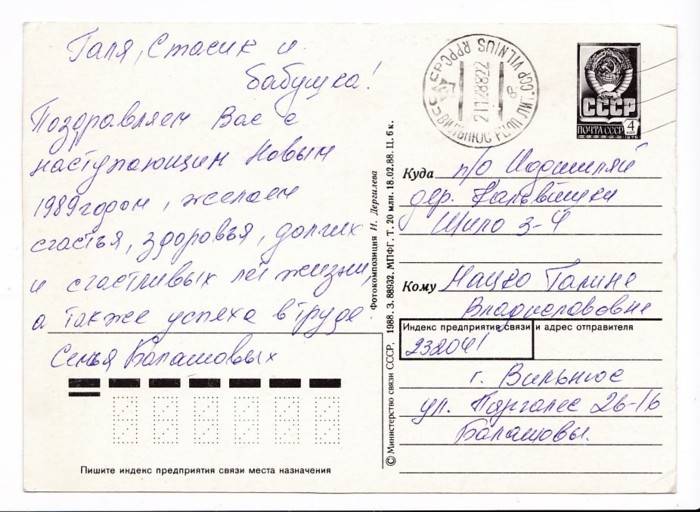 Галя, Стасик и
бабушка!
Поздравляем Вас с
наступающим Новым
1989 годом, желаем
счастья, здоровья, долгих
и счастливых лет жизни,
а также успеха в труде
Семья Балашовых
Пишите индекс предприятия связи места назначения
© Министерство связи СССР, 1988. З. 86932. МПФГ. Т. 20 млн. 18.02.88. Ц. 6 к.
Фотокомпозиция И. Дергилева
VILNIUS
ВИЛЬНЮС
СССР
ПОЧТА СССР
4
Куда п/о
дер.
Шило 3-4
Кому Галине
Владиславовне
Индекс предприятия связи и адрес отправителя
232041
г. Вильнюс
ул. 26-16
Балашовы.